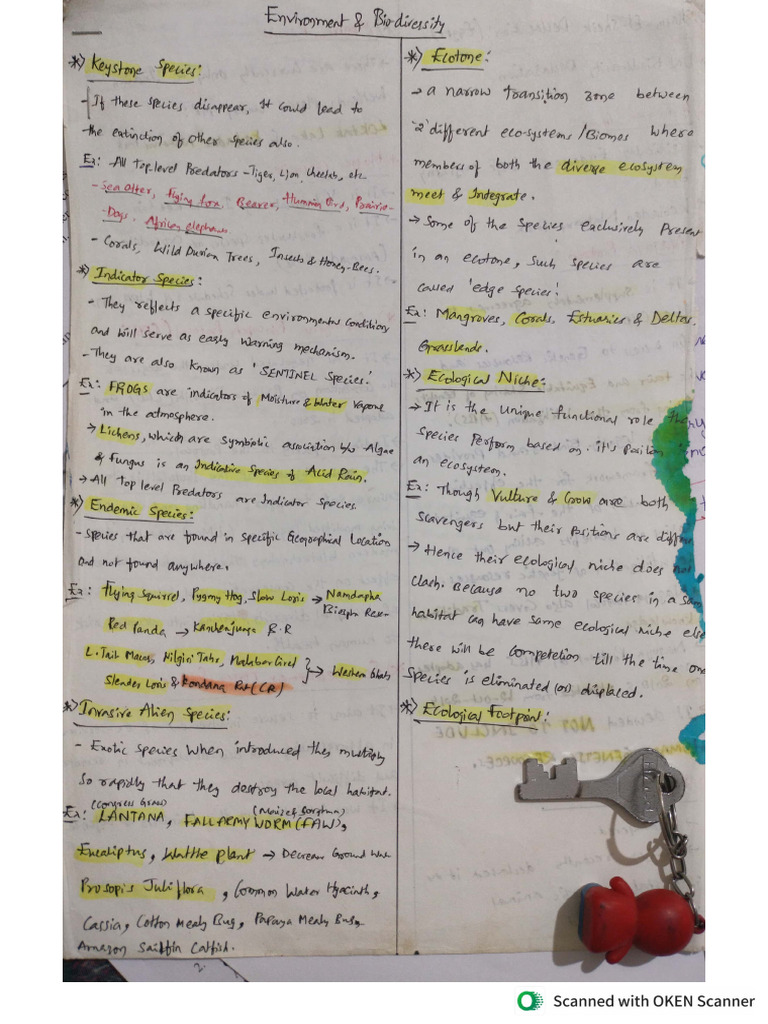 Environment & Bio-diversity
*) Keystone Species:
- If these species disappear, it could lead to
the extinction of other species also.
Ex: - All Top level Predators - Tiger, Lion, Cheetah, etc.
- Sea Otter, Flying fox, Beaver, Humming Bird, Prairie-
Dogs, African elephants
- Corals, Wild Durian Trees, Insects & Honey-Bees.
*) Indicator Species:
- They reflects a specific environmental condition
and will serve as early warning mechanism.
- They are also known as 'SENTINEL Species'.
Ex: FROGS are indicators of Moisture & Water Vapour
in the atmosphere.
→ Lichens, which are symbiotic association b/w Algae
& Fungus is an Indicative Species of Acid Rain.
→ All Top level Predators are Indicator Species.
*) Endemic Species:
- Species that are found in Specific Geographical Location
and not found anywhere.
Ex: Flying Squirrel, Pygmy Hog, Slow Loris → Namdapha
Biosph Reser
Red Panda → Kanchenjunga B.R
L.Tail Macaq, Nilgiri Tahr, Malabar Civet
Slender Loris & Kondana Rat (CR) } → Western Ghats
*) Invasive Alien Species:
- Exotic species when introduced they multiply
so rapidly that they destroy the local habitat.
(Congress Grass) (Maize & Sorghum)
Ex: LANTANA, FALL ARMY WORM (FAW),
Eucaliptus, Wattle plant → Decrease Ground Wate
Prosopis Juliflora, Common Water Hyacinth,
Cassia, Cotton Mealy Bug, Papaya Mealy Bug,
Amazon Sailfin Catfish.
2.
*) Ecotone:
→ a narrow transition zone between
'2' different eco-systems / Biomos where
members of both the diverse ecosystem
meet & Integrate.
→ Some of the Species exclusively Present
in an ecotone, such species are
called 'edge species'.
Ex: Mangroves, Corals, Estuaries & Deltas,
Grasslands.
*) Ecological Niche:
→ It is the unique functional role the
species perform based on it's position
an ecosystem.
Ex: Though Vulture & Crow are both
Scavengers but their Positions are differe
→ Hence their ecological niche does not
clash. Because no two species in a sam
habitat can have same ecological niche else
there will be competetion till the time one
species is eliminated (or) displaced.
*) Ecological Footprint:
Scanned with OKEN Scanner